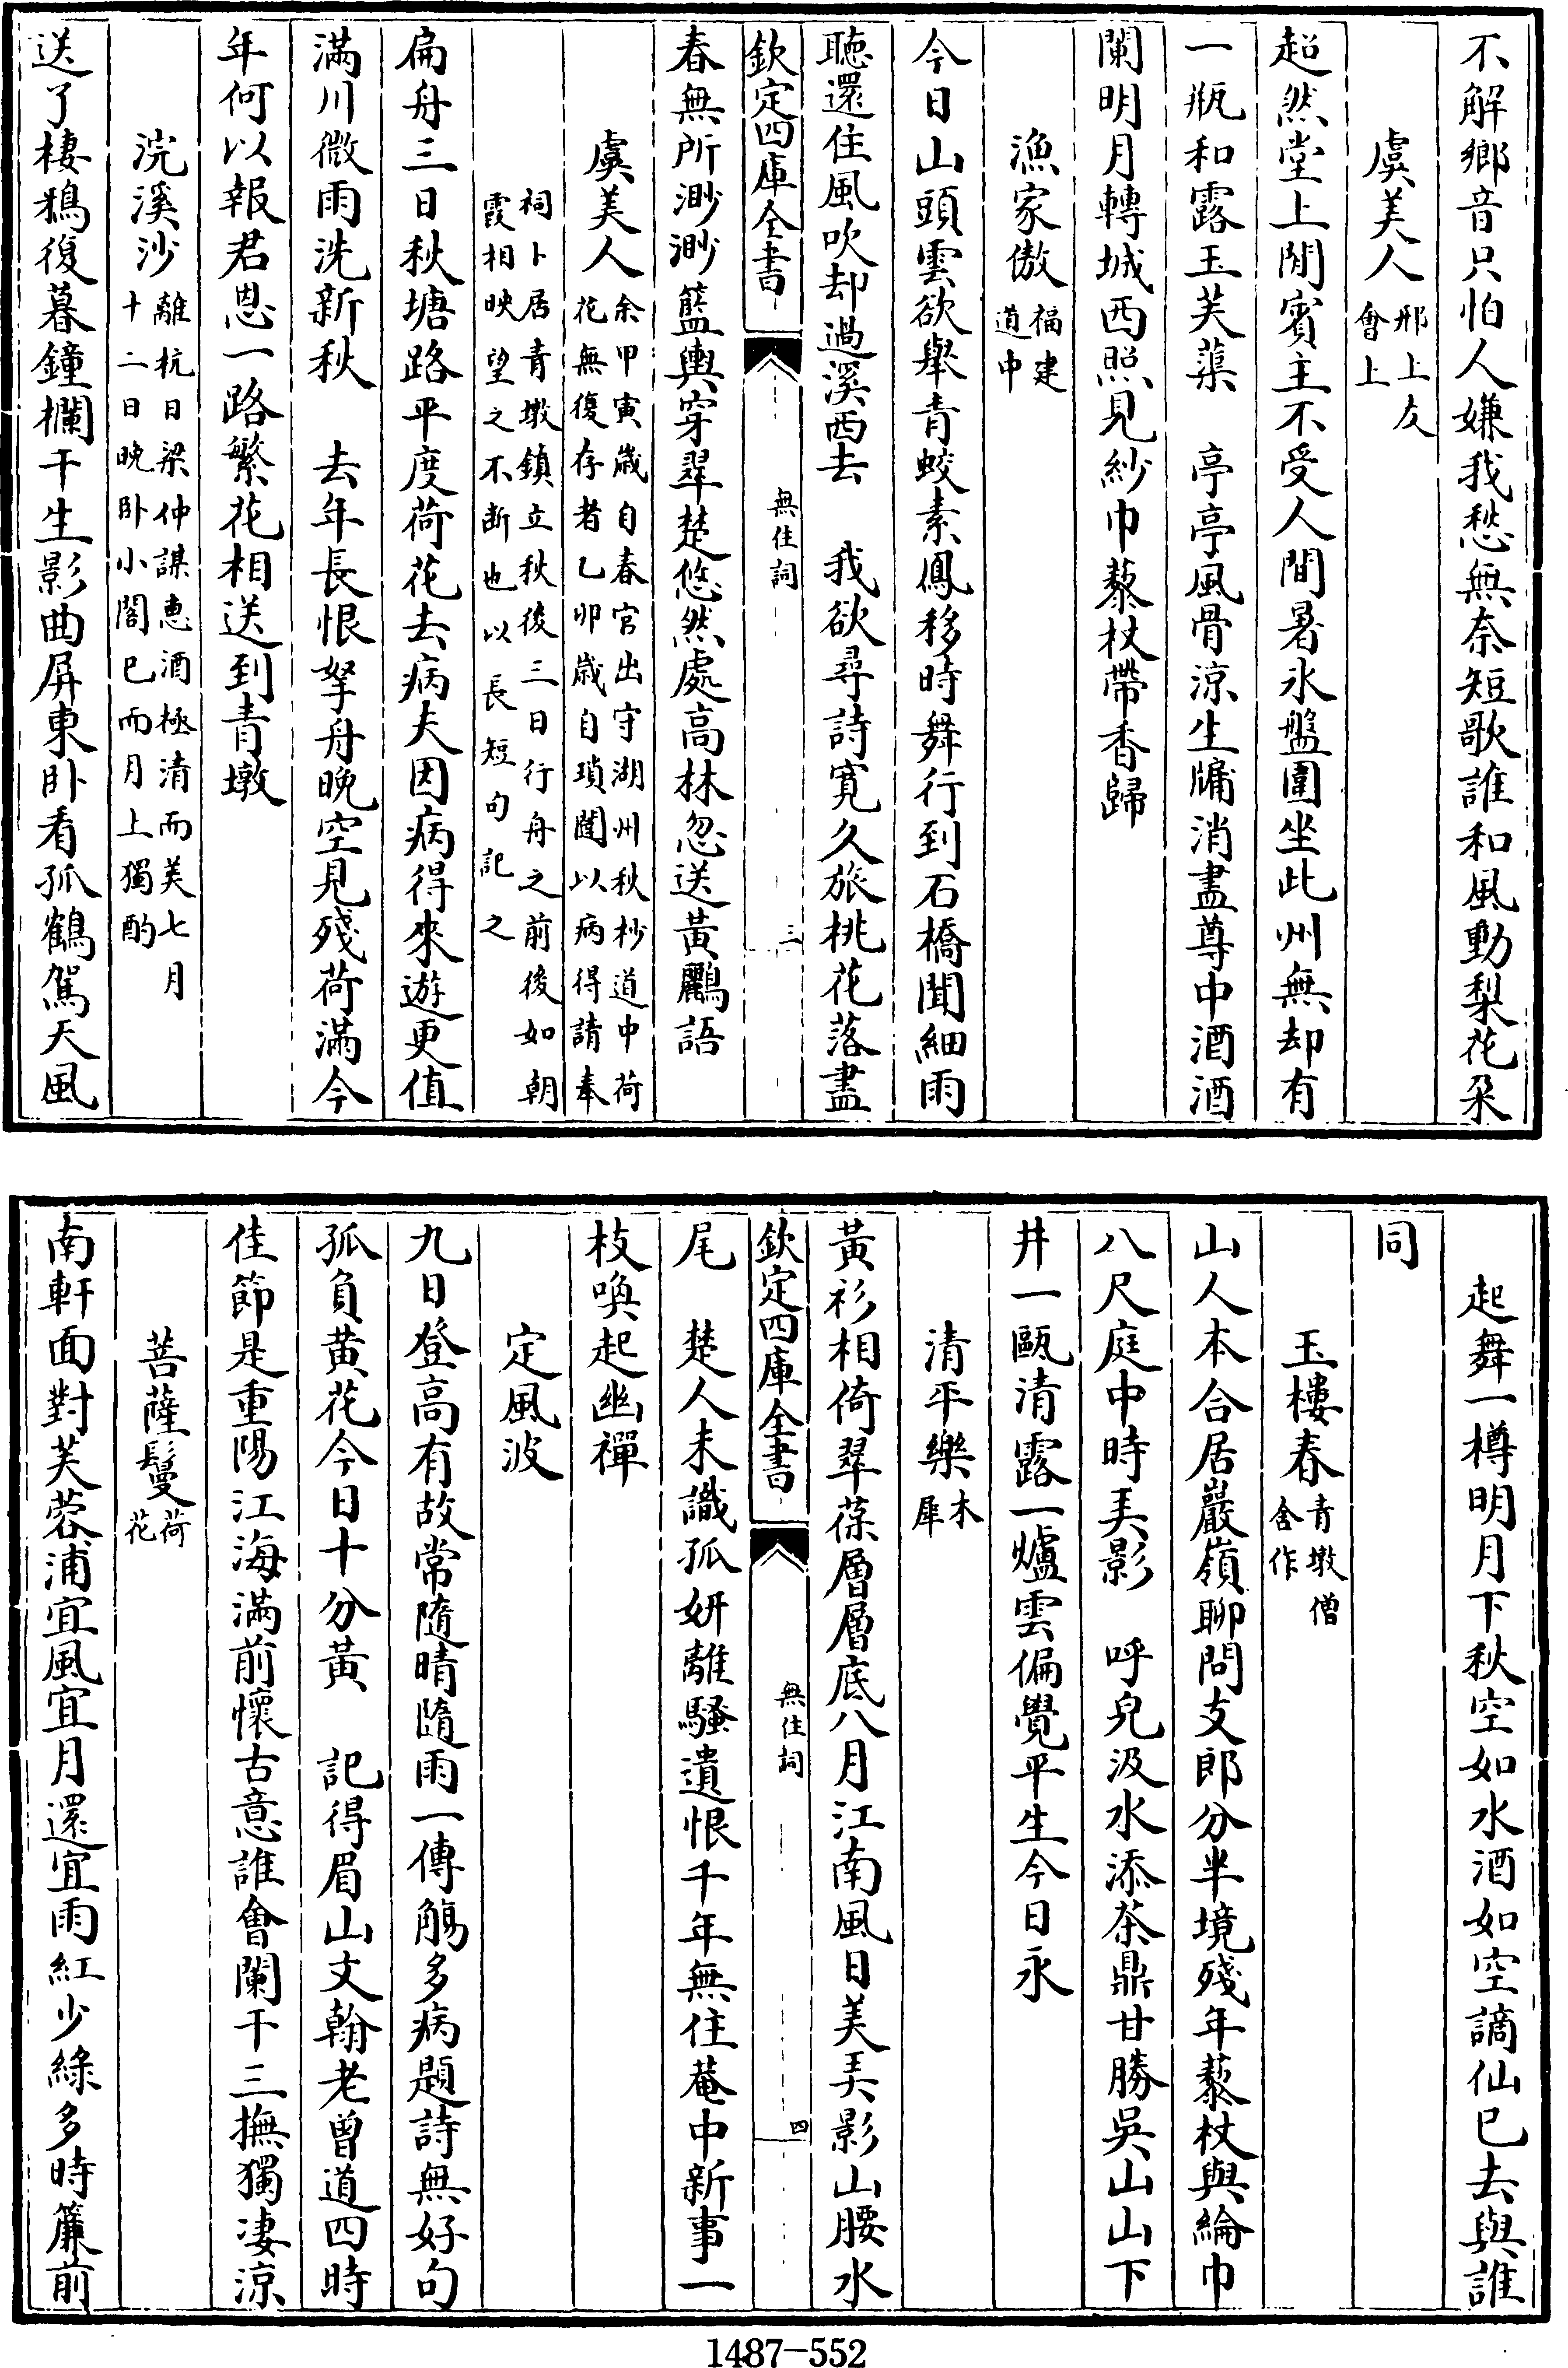 不解鄉音只怕人嫌我愁無奈短歌誰和風動梨花朶
虞美人 邢上友
會上
超然堂上閒賓主不受人間暑氷盤圍坐此州無却有
一瓶和露玉芙蕖　亭亭風骨涼生牖消盡尊中酒酒
闌明月轉城西照見紗巾藜杖帶香歸
漁家傲 福建
道中
今日山頭雲欲舉青蛟素鳳移時舞行到石橋聞細雨
聽還住風吹却過溪西去　我欲尋詩寛久旅桃花落盡
欽定四庫全書　無住詞　三
春無所渺渺籃輿穿翠楚悠然處高林忽送黃鸝語
虞美人 余甲寅歲自春官出守湖州秋杪道中荷
花無復存者乙卯歲自瑣闥以病得請奉
祠卜居青墩鎮立秋後三日行舟之前後如朝
霞相映望之不斷也以長短句記之
扁舟三日秋塘路平度荷花去病夫因病得來遊更值
滿川微雨洗新秋　去年長恨拏舟晚空見殘荷滿今
年何以報君恩一路繁花相送到青墩
浣溪沙 離杭日梁仲謀惠酒極清而美七月
十二日晚卧小閣已而月上獨酌
送了棲鴉復暮鐘欄干生影曲屏東卧看孤鶴駕天風
起舞一樽明月下秋空如水酒如空謫仙已去與誰
同
玉樓春 青墩僧
舍作
山人本合居巖嶺聊問支郎分半境殘年藜杖與綸巾
八尺庭中時弄影　呼兒汲水添茶鼎甘勝吳山山下
井一甌清露一爐雲偏覺平生今日永
清平樂 木
犀
黃衫相倚翠葆層層底八月江南風日美弄影山腰水
欽定四庫全書　無住詞　四
尾　楚人未識孤妍離騷遺恨千年無住菴中新事一
枝喚起幽禪
定風波
九日登高有故常隨晴隨雨一傳觴多病題詩無好句
孤負黃花今日十分黃　記得眉山文翰老曾道四時
佳節是重陽江海滿前懷古意誰會闌干三撫獨凄涼
菩薩鬘 荷
花
南軒面對芙蓉浦宜風宜月還宜雨紅少綠多時簾前
1487—552